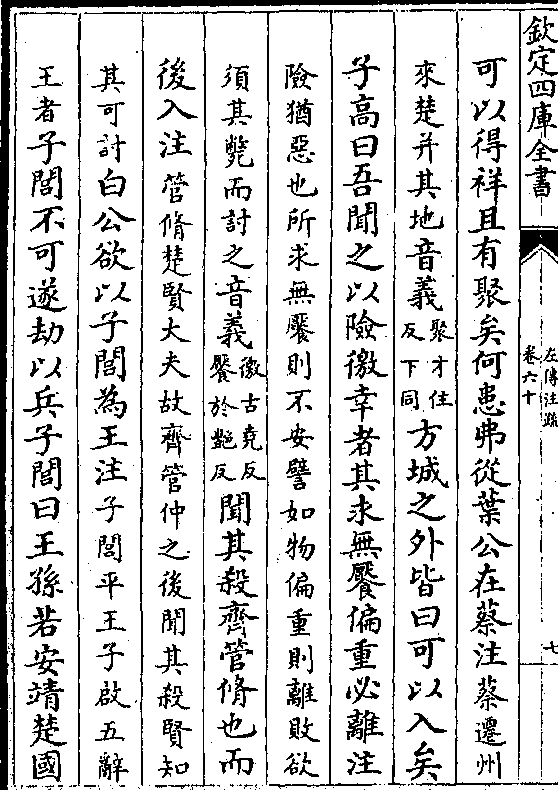 欽定四庫全書
左傳注疏
卷六十
七
可以得祥且有聚矣何患弗從葉公在蔡注蔡遷州
來楚并其地音義聚才住反下同方城之外皆曰可以入矣
子高曰吾聞之以險徼幸者其求無饜偏重必離注
險猶惡也所求無饜則不安譬如物偏重則離敗欲
須其斃而討之音義徼古堯反饜於艶反聞其殺齊管脩也而
後入注管脩楚賢大夫故齊管仲之後聞其殺賢知
其可討白公欲以子閭為王注子閭平王子啟五辭
王者子閭不可遂劫以兵子閭曰王孫若安靖楚國